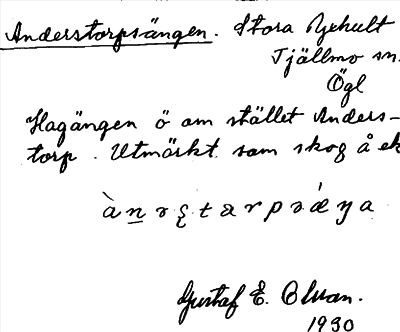 Anderstorpsängen. Stora Bjehult
Tjällmo sn.
Ögl
Hagängen ö om stället Anders-
torp. Utmärkt som skog å ek
Gustaf E. Olsson.
1930